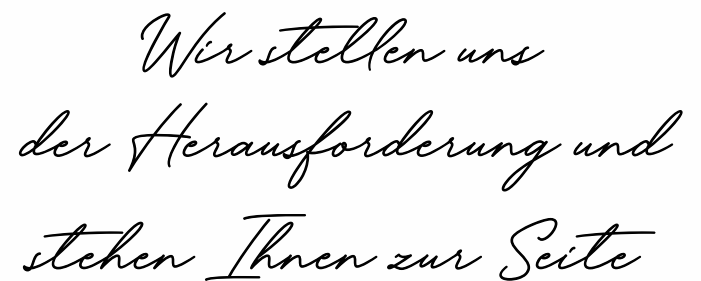 Wir stellen uns
der Herausforderung und
stehen Ihnen zur Seite